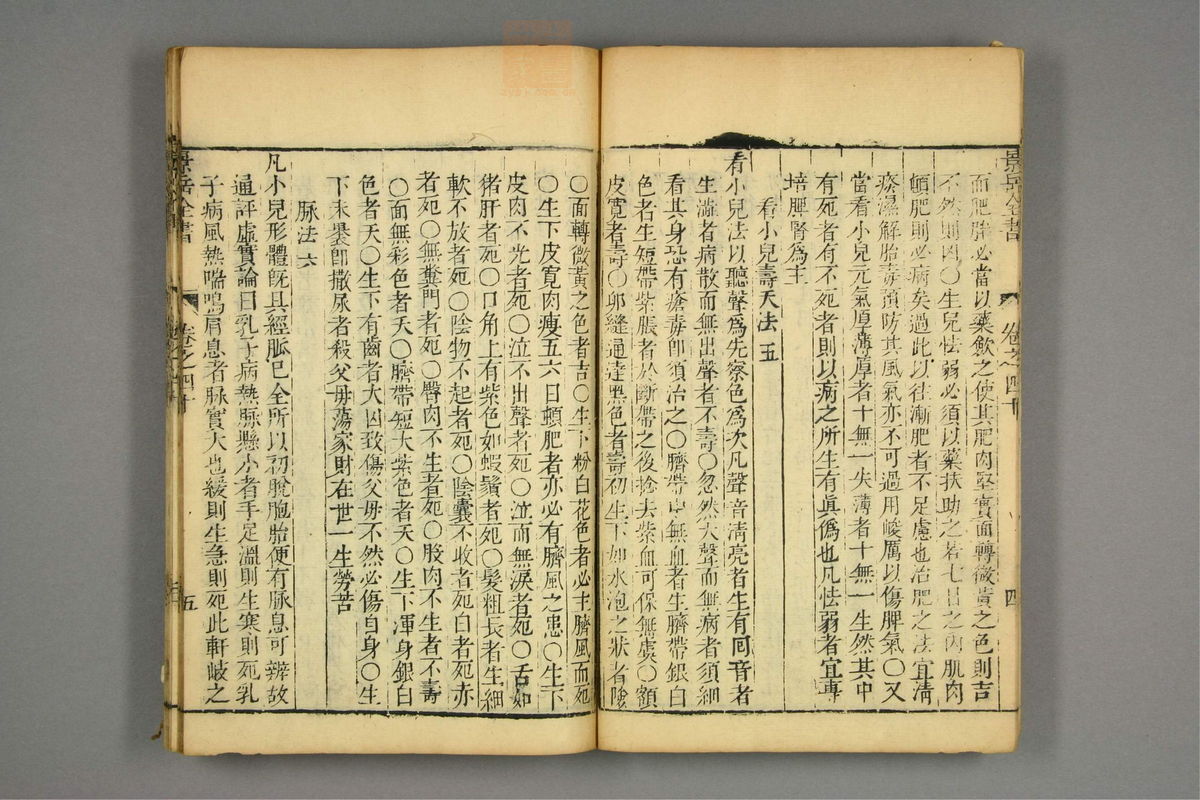 景岳全書 卷之四十 四
而肥胖必當以藥飲之使其肥肉堅實面轉微黃之色則吉
不然則凶○生兒怯弱必須以藥扶助之若七日之內肌肉
頓肥則必病矣過此以往漸肥者不足慮也治肥之法宜清
痰濕解胎毒預防其風氣亦不可過用峻厲以傷脾氣○又
當看小兒元氣厚薄厚者十無一失薄者十無一生然其中
有死者有不死者則以病之所生有眞僞也凡怯弱者宜專
培脾腎爲主
看小兒壽夭法 五
看小兒法以聽聲爲先察色爲次凡聲音清亮者生有囘音者
生澁者病散而無出聲者不壽○忽然大聲而無病者須細
看其身恐有瘡毒卽須治之○臍帶中無血者生臍帶銀白
色者生短帶紫脹者於斷帶之後捻去紫血可保無虞○額
皮寬者壽○卵縫通達黑色者壽初生下如水泡之狀者險
○面轉微黃之色者吉○生下粉白花色者必主臍風而死
○生下皮寬肉瘦五六日頓肥者亦必有臍風之患○生下
皮肉不光者死○泣不出聲者死○泣而無淚者死○舌如
猪肝者死○口角上有紫色如蝦鬚者死○髮粗長者生細
軟不放者死○陰物不起者死○陰囊不收者死白者死赤
者死○無糞門者死○臀肉不生者死○股肉不生者不壽
○面無彩色者夭○臍帶短大紫色者夭○生下渾身銀白
色者夭○生下有齒者大凶致傷父母不然必傷自身○生
下未裹卽撒尿者殺父母蕩家財在世一生勞苦
脉法 六
凡小兒形體旣具經脈已全所以初脫胞胎便有脉息可辨故
通評虛實論曰乳子病熱脉懸小者手足溫則生寒則死乳
子病風熱喘鳴肩息者脉實大也緩則生急則死此軒岐之
景岳全書 卷之四十 五